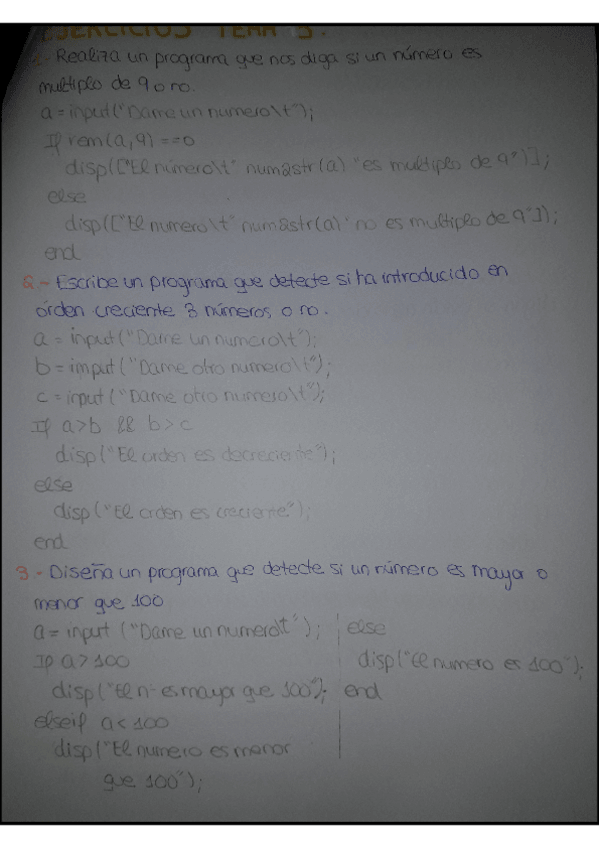 EJERCICIOS TEMA 3.
- Realiza un programa que nos diga si un número es
multiplo de 9 o no.
a = input("Dame un numero\t");
If rem(a,9) ==0
disp(["El número\t" num2str(a) "es multiplo de 9")];
else
disp(["El numero\t" num2str(a) "no es multiplo de 9"]);
end
2.- Escribe un programa que detecte si ha introducido en
orden creciente 3 números o no.
a = input("Dame un numero\t");
b = imput ("Dame otro numero\t");
c = input ("Dame otro numero\t");
If a>b && b>c
disp("El orden es decreciente");
else
disp("El orden es creciente");
end
3.- Diseña un programa que detecte si un número es mayor o
menor que 100
a = input ("Dame un numero\t");
If a>100
disp("El nº es mayor que 100");
elseif a<100
disp("El numero es menor
que 100");
else
disp("El numero es 100");
end